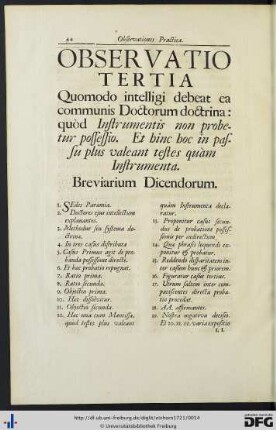 92 Observationes Practicæ.
OBSERVATIO
TERTIA
Quomodo intelligi debeat ea
communis Doctorum doctrina:
quòd Instrumentis non probe-
tur possessio. Et hinc hoc in pas-
su plus valeant testes quàm
Instrumenta.
Breviarium Dicendorum.
1. SEdes Parœmia.
2. Doctores ejus intellectum
explanantes.
3. Methodus seu systema do-
ctrina.
4. In tres casus distributa
5. Casus Primus agit de pro-
banda possessione directè.
6. Et hac probatio repugnat.
7. Ratio prima.
8. Ratio secunda.
9. Objectio prima.
10. Hac dissolvitur.
11. Objectio secunda.
12. Hac una cum Mantissa,
quòd testes plus valeant
quàm Instrumenta decla-
ratur.
13. Proponitur casus secun-
dus de probatione posses-
sionis per indirectum
14. Qua phrasis loquendi ex-
ponitur & probatur.
15. Reddendo disparitatem in-
ter casum hunc & priorem.
16. Figuratur casus tertius.
17. Utrum saltem inter com-
possessores directa proba-
tio procedat.
18. AA. affirmantes.
19. Nostra negativa decisio.
Et 20. 21. 22. varia expositio
L. I.
http://dl.ub.uni-freiburg.de/diglit/eichhorn1721/0054
© Universitätsbibliothek Freiburg
gefördert durch die
DFG